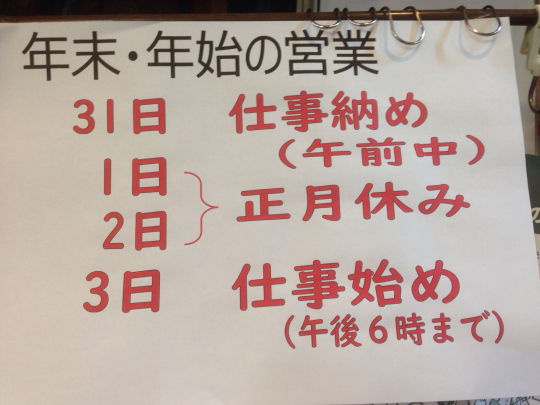 年末・年始の営業
31日 仕事納め
(午前中)
1日
2日
正月休み
3日 仕事始め
(午後6時まで)